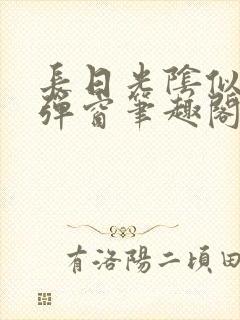 長日光陰似
彈窗筆趣閣
有洛陽二頃田